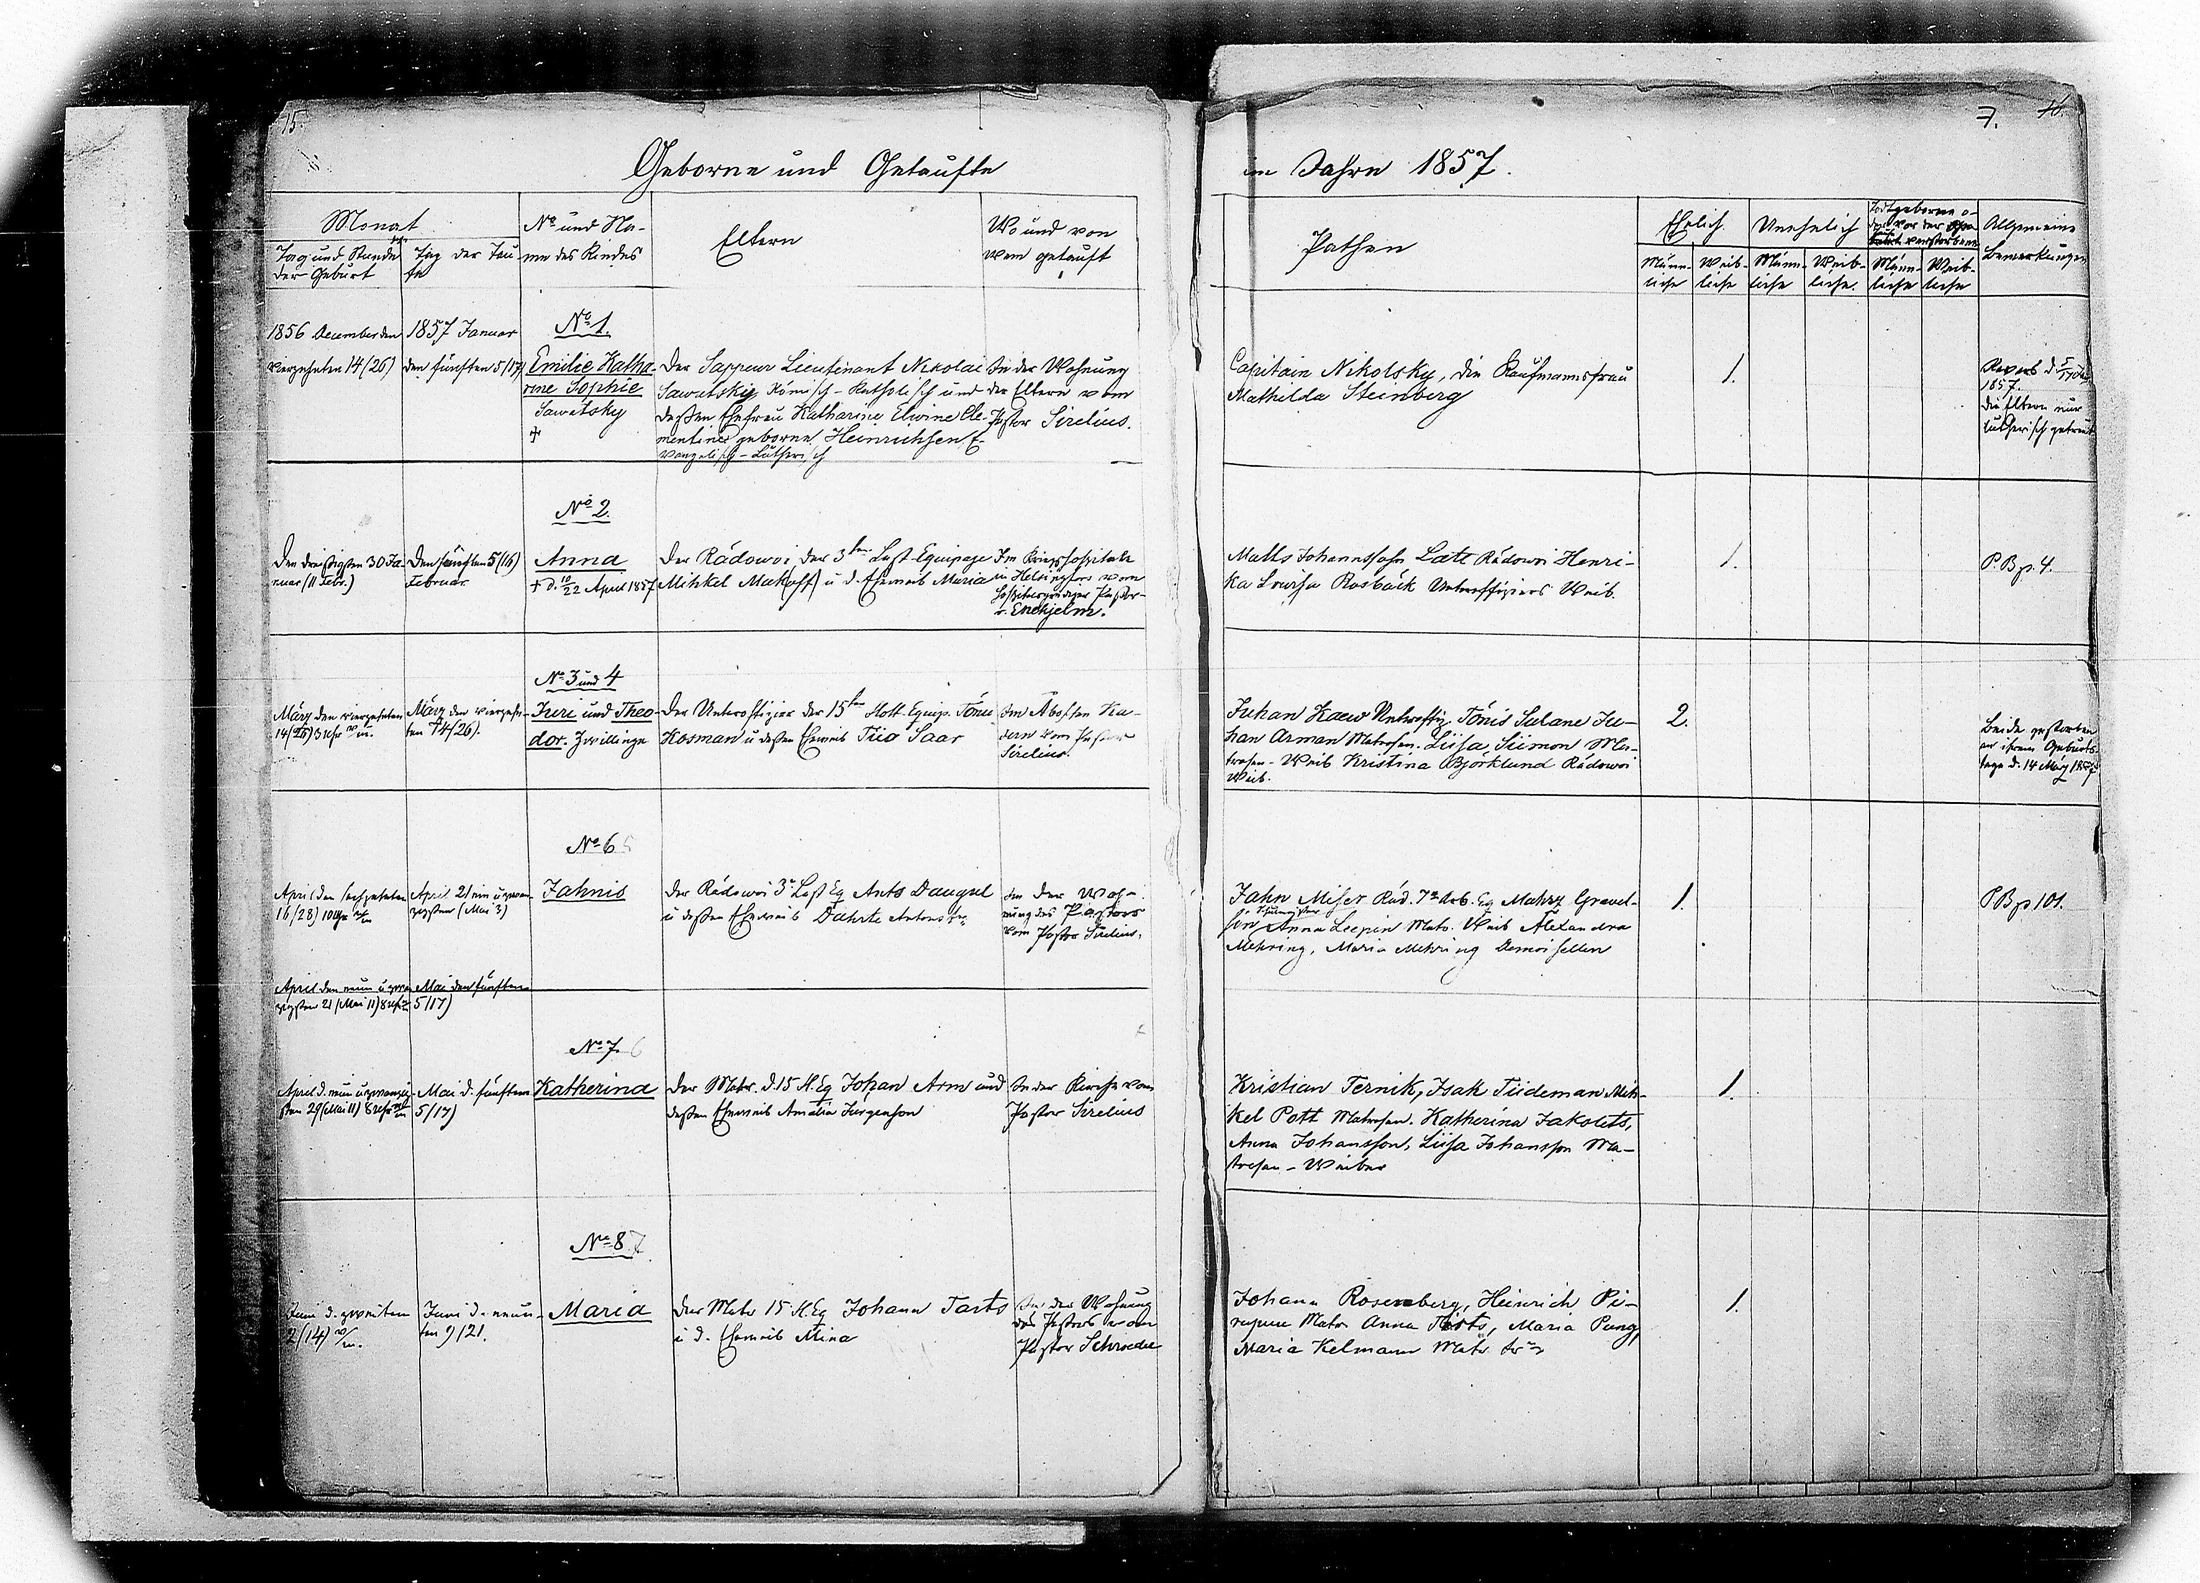 15.
7. 16.
Geborne und Getaufte
im Jahre 1857.
Monat
Tag und Stunde
der Geburt
Tag der Tau-
fe
No und Na-
me des Kindes
Eltern
Wo und von
wem getauft
Pathen
Ehelich
Unehelich
Todtgeborene o-
Männ-
liche
Weib-
liche
Männ-
liche
Weib-
liche.
Männ-
liche
Weib-
liche
Allgemeine
Bemerkungen
1856 December den
vierzehnten 14/(26)
1857 Januar
den fünften 5/17)
No 1.
Emilie Katha-
rine Sophie
Sawitsky
+
Der Sappeur Lieutenant Nikolai
Sawitsky Römisch-Katholisch und
dessen Ehefrau Katharine Elwine Cle-
mentine geborne Heinrichsen E-
vangelisch-Lutherisch
In der Wohnung
der Eltern vom
Pastor Sirelius.
Capitain Nikolsky, die Kaufmannsfrau
Mathilda Steinberg
1.
Revers d. 5/17 Jan.
1857.
Die Eltern nur
lutherisch getraut
No 2.
Den dreißigsten 30 Ja-
nuar (11 Febr.)
Den fünften 5/(16)
Februar
Anna
+ d. 10/22 April 1857
Der Rädowoi der 3ten Last-Equipage
Mihkel Makoff) u d. Eheweib Maria
Im Kriegshospitale
in Helsingfors vom
Pastor
v. Enehjelm.
Matts Johannssohn Latt Rädowoi Henri-
ka Lowisa Rosbäck Unteroffiziers Weib.
1.
P.B p. 4.
No 3 und 4
März den vierzehnten
14/(26) 3 Uhr
März den vierzehn-
ten 14/26).
Juri und Theo-
dor. Zwillinge
Der Unteroffizier der 15ten Flott-Equip. Tönu
Kosman u dessen Eheweib Tiio Saar
Im Åboschen Ka-
dern vom Pastor
Sirelius.
Juhan Kaew Unteroffiz. Tönis Sulane Ju-
han Arman Matrosen. Liisa Siimon Ma-
trosen-Weib Kristina Björklund Rädowoi
Weib.
2.
Beide gestorben
an ihrem Geburts-
tage d. 14 März 1857
No 6
April den sechzehnten
16/28) 10 Uhr
April 21 ein u zwan-
zigsten (Mai 3)
Jahnis
Der Rädowoi 3r Last Eq Ants Daugul
u dessen Eheweib Dahrte
In der Woh-
nung des Pastors
vom Pastor Sirelius.
Jahn Miser Räd. 7r Arb. Eq Mahrz Gravel-
sin Anna Leepin Matr. Weib Alexandra
Mehring, Maria Mehring Demoisellen
1.
P B p 101.
April den neun u zwan-
zigsten 21 (Mai 11) 8 Uhr
Mai den fünften
5/17)
No 7. 6
April d. neun u zwanzig-
sten 29 (Mai 11) 8 Uhr
Mai d. fünften
5/17)
Katherina
Der Matr. d. 15 Fl. Eq Johan Arm und
dessen Eheweib Amalia Jurgenson
In der Kirche vom
Pastor Sirelius
Kristian Ternik, Isak Tiideman Mih-
kel Pott Matrosen. Katherina Jakolets,
Anna Johansson, Liisa Johansson Ma-
trosen-Weiber
1.
No 8. 7
Juni d. zweiten
2/(14)
Juni d. neun-
ten 9/21.
Maria
Der Matr 15 Fl. Eq Johann Tarts
u d. Eheweib Mina
In der Wohnung
des Pastors von
Pastor Schroeder
Johann Rosenberg, Heinrich Pi-
Matr. Anna Tarts, Maria Pung,
Maria Kelmann Matr.
1.